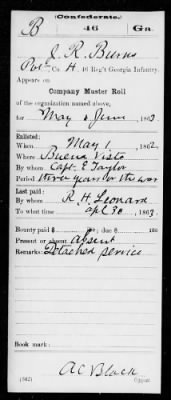 (Confederate.)
B 46 Ga.
J. R. Burns
Pvt., Co. H, 46 Reg't Georgia Infantry.
Appears on
Company Muster Roll
of the organization named above,
for May & June, 1863.
Enlisted:
When May 1, 1862.
Where Buena Vista
By whom Capt. E Taylor
Period three years or the war
Last paid:
By whom R. H. Leonard
To what time Apl 30, 1863.
Bounty paid $ ; due $ 100
Present or absent Absent
Remarks: Detached service
Book mark:
(642) A C Black
Copyist.